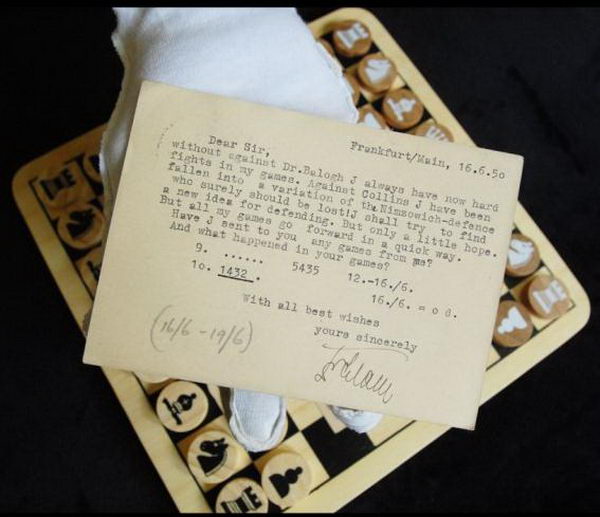 Frankfurt/Main, 16.6.50
Dear Sir,
without against Dr.Balogh J always have now hard
fights in my games. Against Collins J have been
fallen into a variation of the Nimzowich-defence
who surely should be lost!J shall try to find
a new idea for defending. But only a little hope.
But all my games go forward in a quick way.
Have J sent to you any games from me?
And what happened in your games?
9. ...... 5435 12.-16./6.
1o. 1432. 16./6. = o d.
With all best wishes
yours sincerely
(16/6 - 19/6)